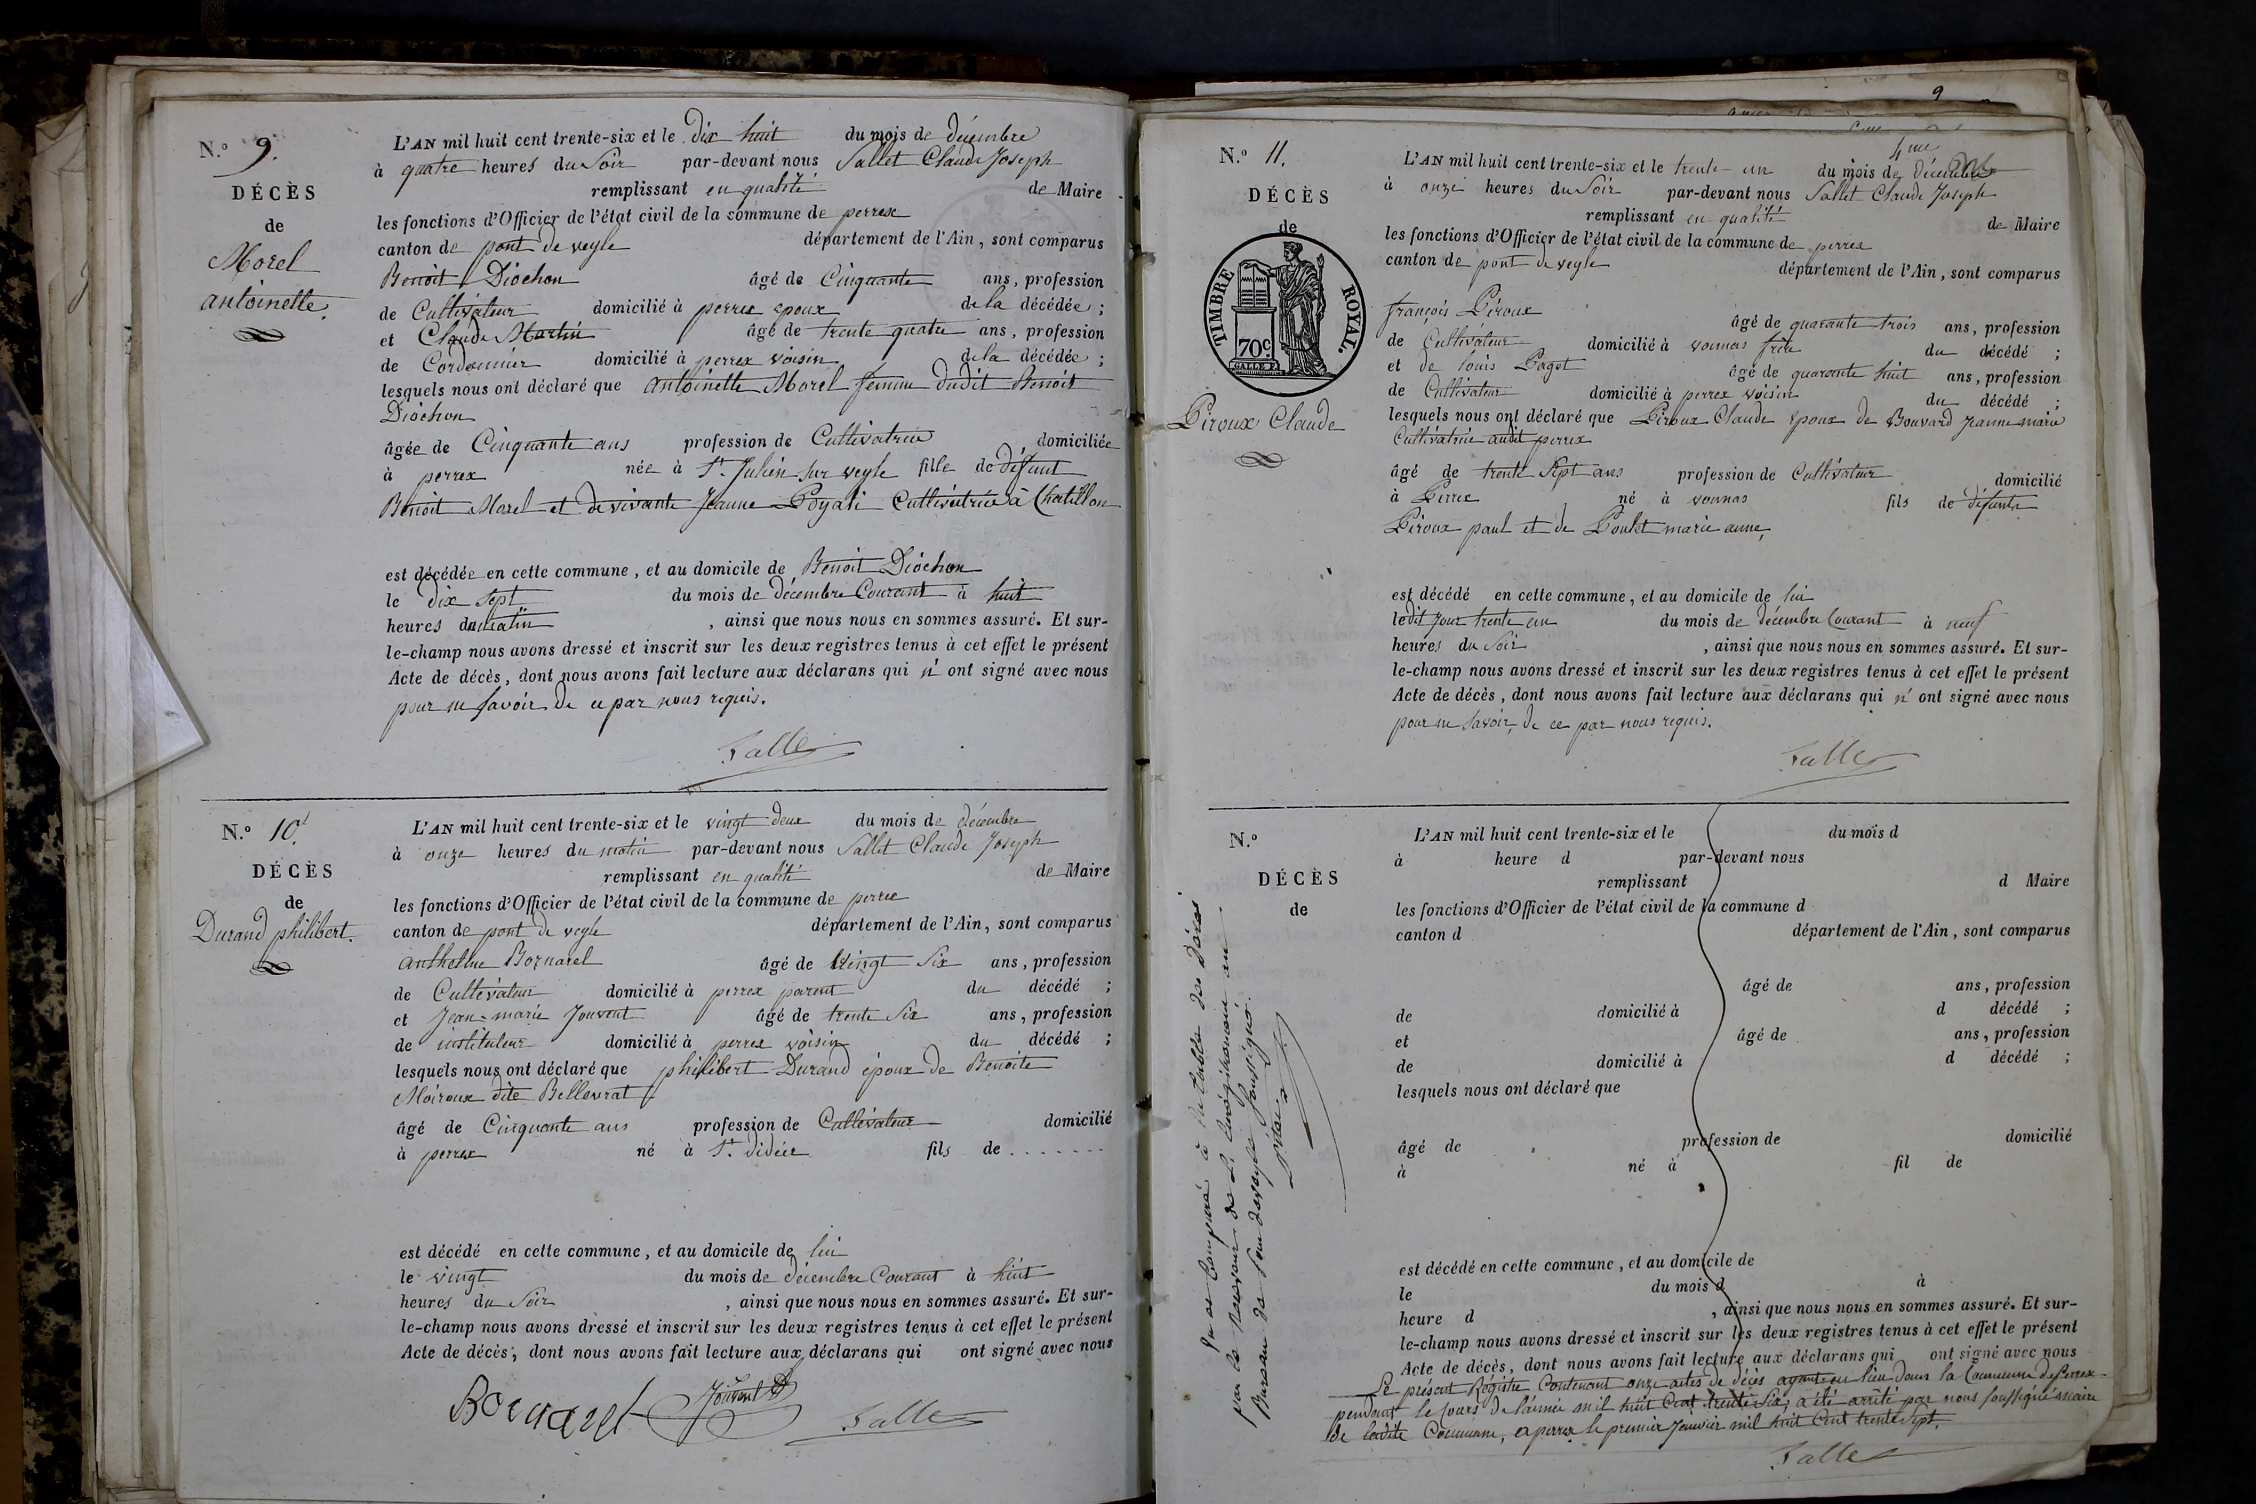 N.º 9.
DÉCÈS
de
Morel
antoinette.
L'AN mil huit cent trente-six et le dix huit du mois de décembre
à quatre heures du Soir par-devant nous Sallet Claude Joseph
remplissant en qualité de Maire
les fonctions d'Officier de l'état civil de la commune de perrex
canton de pont de veyle département de l'Ain, sont comparus
Benoit Diochon âgé de Cinquante ans, profession
de Cultivateur domicilié à perrex epoux de la décédée ;
et Claude Martin âgé de trente quatre ans, profession
de Cordonnier domicilié à perrex voisin de la décédée ;
lesquels nous ont déclaré que antoinette Morel femme dudit Benoit
Diochon
âgée de Cinquante ans profession de Cultivatrice domiciliée
à perrex née à St. Julien Sur veyle fille de défunt
Benoit Morel et de vivante Jeanne Poyati Cultivatrice à Chatillon
est décédée en cette commune, et au domicile de Benoit Diochon
le dix Sept du mois de décembre Courant à huit
heures du matin , ainsi que nous nous en sommes assuré. Et sur-
le-champ nous avons dressé et inscrit sur les deux registres tenus à cet effet le présent
Acte de décès, dont nous avons fait lecture aux déclarans qui n' ont signé avec nous
pour ne savoir de ce par nous requis.
Sallet
N.º 10.
DÉCÈS
de
Durand philibert.
L'AN mil huit cent trente-six et le vingt deux du mois de décembre
à onze heures du matin par-devant nous Sallet Claude Joseph
remplissant en qualité de Maire
les fonctions d'Officier de l'état civil de la commune de perrex
canton de pont de veyle département de l'Ain, sont comparus
anthelme Bornarel âgé de vingt Six ans, profession
de Cultivateur domicilié à perrex parent du décédé ;
et Jean-marie Jouvent âgé de trente Six ans, profession
de instituteur domicilié à perrex voisin du décédé ;
lesquels nous ont déclaré que philibert Durand époux de Benoite
Moiroux dite Bellevrat
âgé de Cinquante ans profession de Cultivateur domicilié
à perrex né à St. didier fils de . . . . . . .
est décédé en cette commune, et au domicile de lui
le vingt du mois de décembre Courant à huit
heures du Soir , ainsi que nous nous en sommes assuré. Et sur-
le-champ nous avons dressé et inscrit sur les deux registres tenus à cet effet le présent
Acte de décès, dont nous avons fait lecture aux déclarans qui ont signé avec nous
Bornarel Jouvent Sallet
9
4me
N.º 11.
DÉCÈS
de
TIMBRE ROYAL.
70c.
Piroux Claude
L'AN mil huit cent trente-six et le trente un du mois de décembre
à onze heures du Soir par-devant nous Sallet Claude Joseph
remplissant en qualité de Maire
les fonctions d'Officier de l'état civil de la commune de perrex
canton de pont de veyle département de l'Ain, sont comparus
françois Piroux âgé de quarante trois ans, profession
de Cultivateur domicilié à vonnas frère du décédé ;
et de louis Paget âgé de quarante huit ans, profession
de Cultivateur domicilié à perrex voisin du décédé ;
lesquels nous ont déclaré que Piroux Claude époux de Bouvard Jeanne marie
Cultivatrice audit perrex
âgé de trente Sept ans profession de Cultivateur domicilié
à Perrex né à vonnas fils de défunts
Piroux paul et de Poulet marie anne,
est décédé en cette commune, et au domicile de lui
le dit jour trente un du mois de décembre Courant à neuf
heures du Soir , ainsi que nous nous en sommes assuré. Et sur-
le-champ nous avons dressé et inscrit sur les deux registres tenus à cet effet le présent
Acte de décès, dont nous avons fait lecture aux déclarans qui n' ont signé avec nous
pour ne savoir, de ce par nous requis.
Sallet
N.º
DÉCÈS
de
L'AN mil huit cent trente-six et le du mois d
à heure d par-devant nous
remplissant d Maire
les fonctions d'Officier de l'état civil de la commune d
canton d département de l'Ain, sont comparus
âgé de ans, profession
de domicilié à d décédé ;
et âgé de ans, profession
de domicilié à d décédé ;
lesquels nous ont déclaré que
âgé de profession de domicilié
à né à fil de
est décédé en cette commune, et au domicile de
le du mois d à
heure d , ainsi que nous nous en sommes assuré. Et sur-
le-champ nous avons dressé et inscrit sur les deux registres tenus à cet effet le présent
Acte de décès, dont nous avons fait lecture aux déclarans qui ont signé avec nous
Le présent Régistre Contenant onze actes de décès ayant eu lieu dans la Commune de Perrex
pendant le cours de l'année mil huit Cent trente Six, a été arrêté par nous soussigné maire
de ladite Commune, à perrex le premier Janvier mil huit Cent trente Sept.
Sallet
Vu et Comparé à la table des Décès
par le Receveur de l'Enregistrement au
Bureau de Pont de veyle Soussigné.